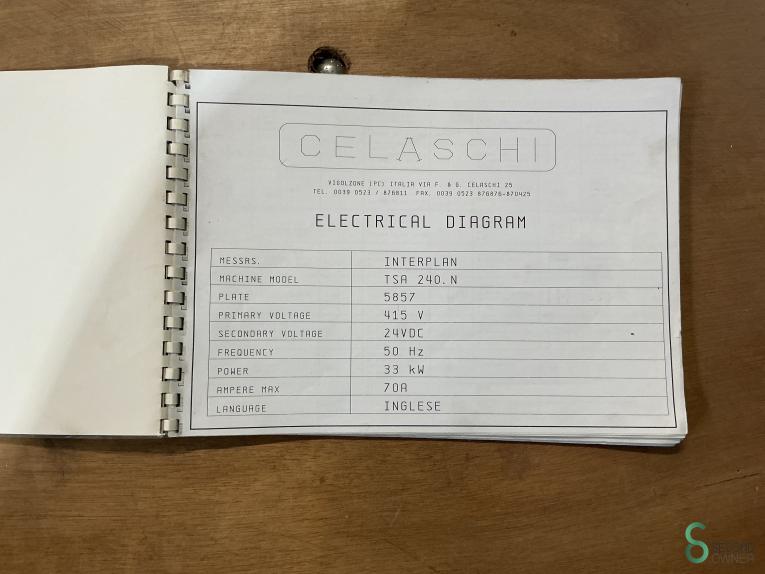 CELASCHI
VIGOLZONE (PC) ITALIA VIA F. & G. CELASCHI 25
TEL. 0039 0523 / 876811 FAX. 0039 0523 876876-870425
ELECTRICAL DIAGRAM
MESSRS. INTERPLAN
MACHINE MODEL TSA 240.N
PLATE 5857
PRIMARY VOLTAGE 415 V
SECONDARY VOLTAGE 24VDC
FREQUENCY 50 Hz
POWER 33 kW
AMPERE MAX 70A
LANGUAGE INGLESE
SECOND
OWNER